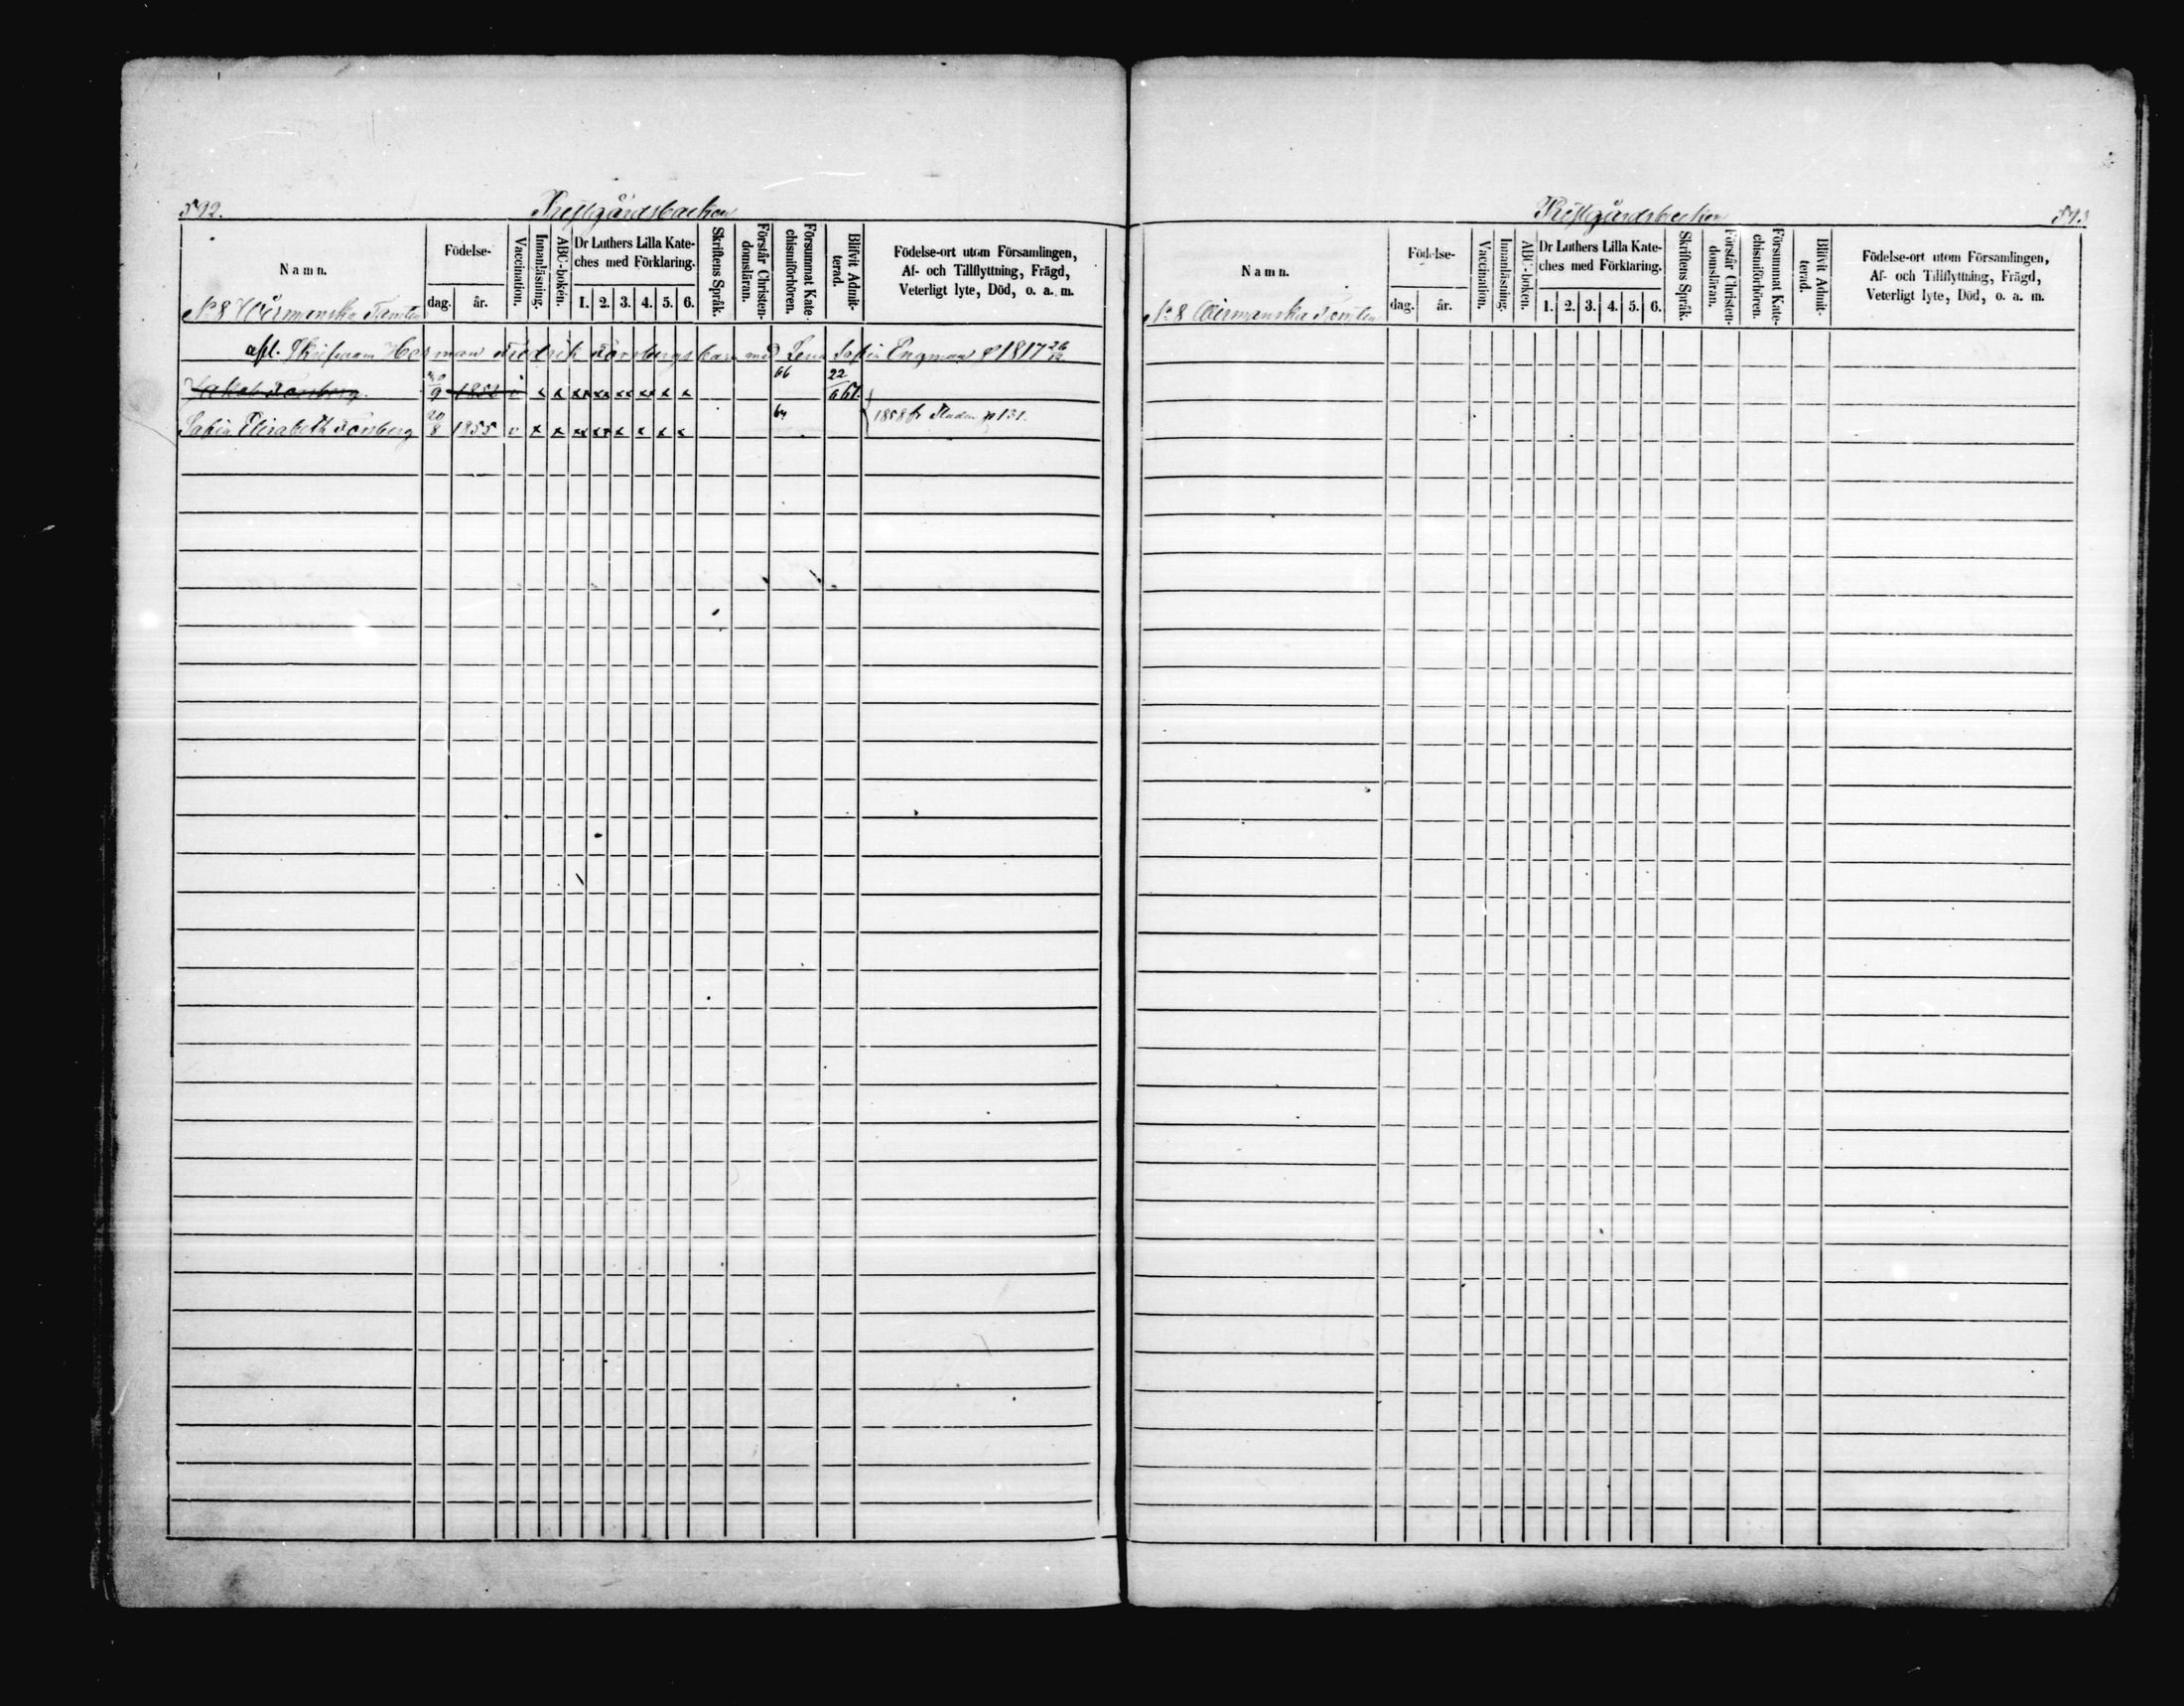 592.
Prestgårdsbacken
Namn.
Födelse-
dag.
år.
Vaccination.
Innanläsning.
ABC-boken.
Dr Luthers Lilla Kate-
ches med Förklaring.
1. 2. 3. 4. 5. 6.
Skriftens Språk.
Förstår Christen-
domsläran.
Försummat Kate-
chismiförhören.
Blifvit Admit-
terad.
Födelse-ort utom Församlingen,
Af- och Tillflyttning, Frägd,
Veterligt lyte, Död, o. a. m.
No 8 Wörmanska Tomten
afl. Herman Fredrik Forsbergs barn med Lena Sofia Engman f 1817 26/12
Jakob Forsberg. 9 1852 v x x xx xx xx xx x x 66 22/6 67.
Sofia Elisabeth Forsberg 20/8 1855 v x x xx xx x x x x
1858 fr Staden p 131.
593
Prestgårdsbacken
Namn.
Födelse-
dag.
år.
Vaccination.
Innanläsning.
ABC-boken.
Dr Luthers Lilla Kate-
ches med Förklaring.
1. 2. 3. 4. 5. 6.
Skriftens Språk.
Förstår Christen-
domsläran.
Försummat Kate-
chismiförhören.
Blifvit Admit-
terad.
Födelse-ort utom Församlingen,
Af- och Tillflyttning, Frägd,
Veterligt lyte, Död, o. a. m.
No 8 Wörmanska Tomten